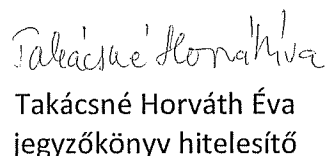 Takácsné Horváth Éva
Takácsné Horváth Éva
jegyzőkönyv hitelesítő